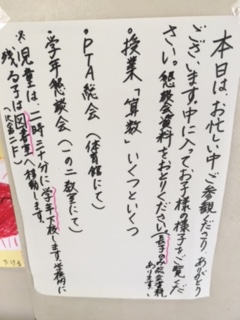 本日は、お忙しい中ご参観くださりありがとう
ございます。中に入ってお子様の様子をご覧くだ
さい。懇談会資料をおとりください
・授業「算数」いくつといくつ
・PTA総会（体育館にて）
・学年懇談会（一の二教室にて）
※児童は、一時二十分に学年下校します。学校に
残る子は図書室へ移動します。